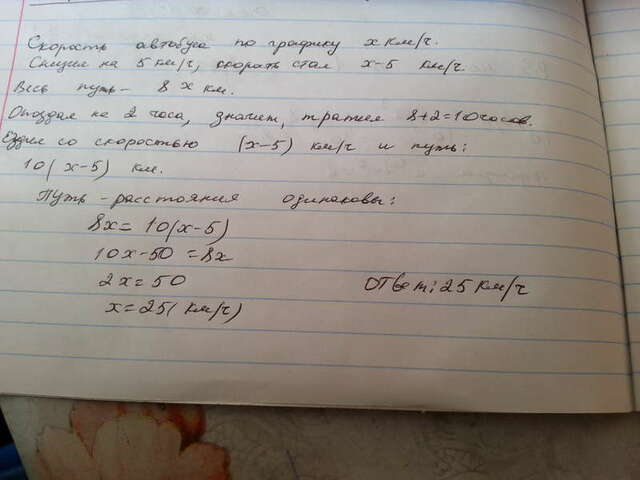 Скорость автобуса по графику x км/ч.
Снизил на 5 км/ч, скорать стал x-5 км/ч.
Весь путь - 8x км.
Опоздал на 2 часа, значит, тратил 8+2=10 часов.
Ездил со скоростью (x-5) км/ч и путь:
10(x-5) км.
Путь - расстояния одинаковы:
8x = 10(x-5)
10x-50 = 8x
2x = 50
x = 25 (км/ч)
Ответ: 25 км/ч